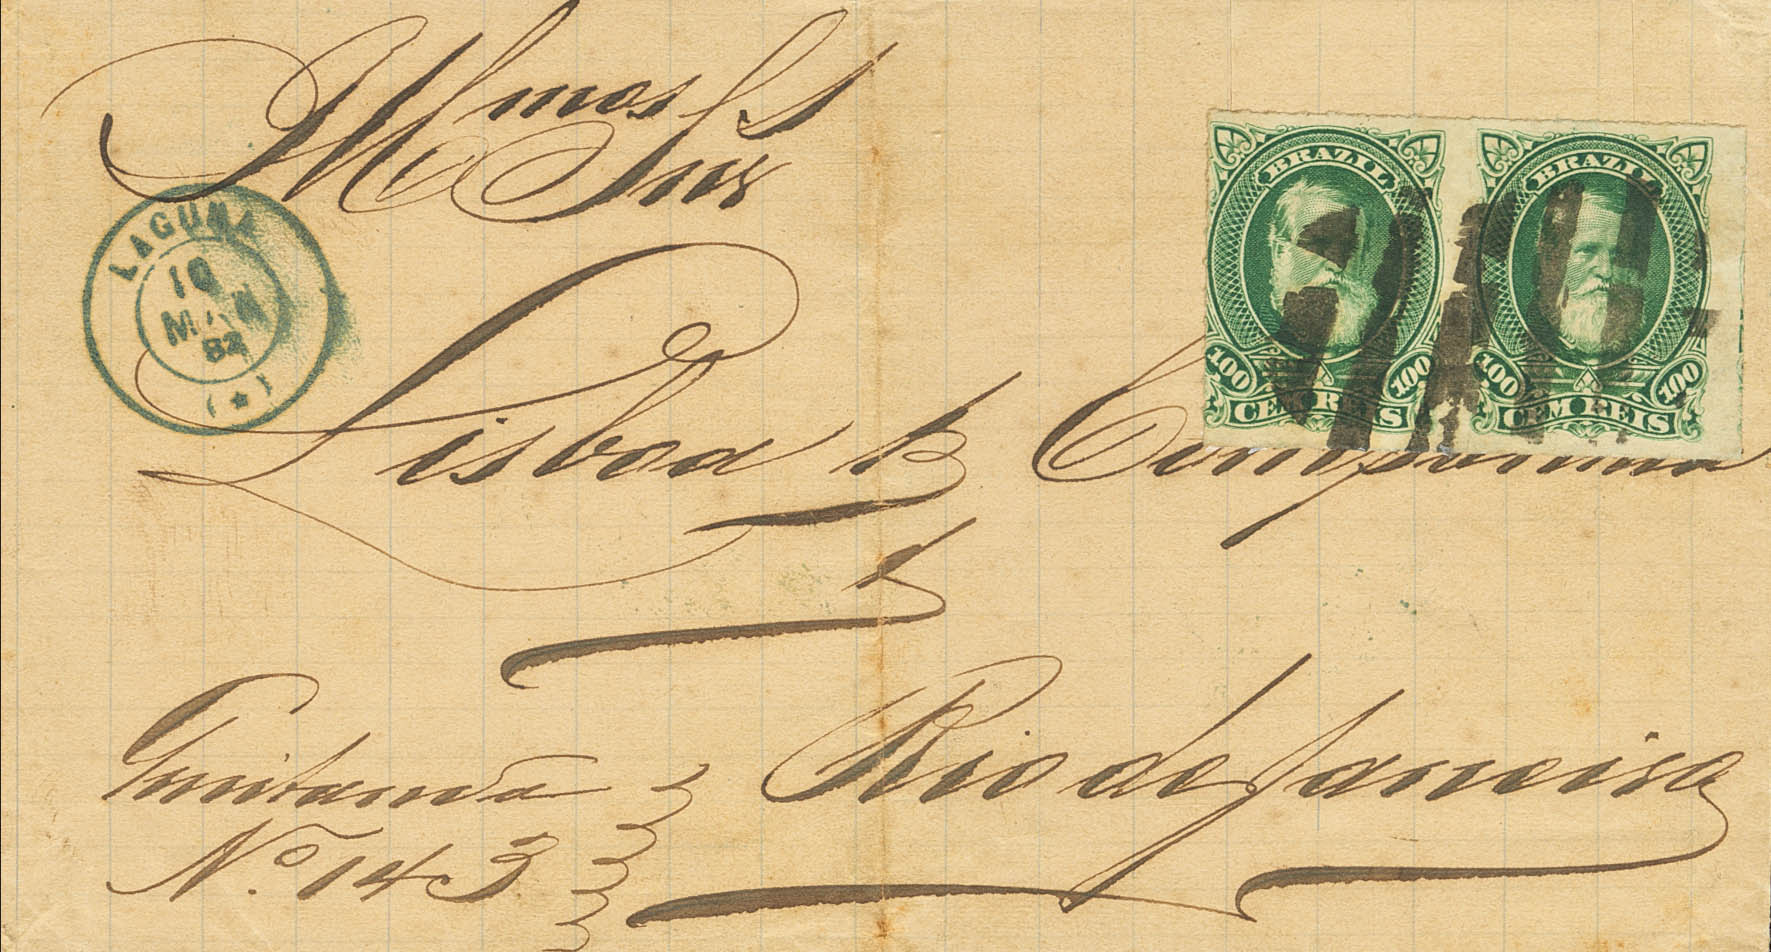 Illmos Srs
Lisboa & Companhia
Rio de Janeiro
Quitanda
No. 143
LAGUNA
10
MAR
82
(★)
BRAZIL
100 100
CEM REIS
BRAZIL
100 100
CEM REIS